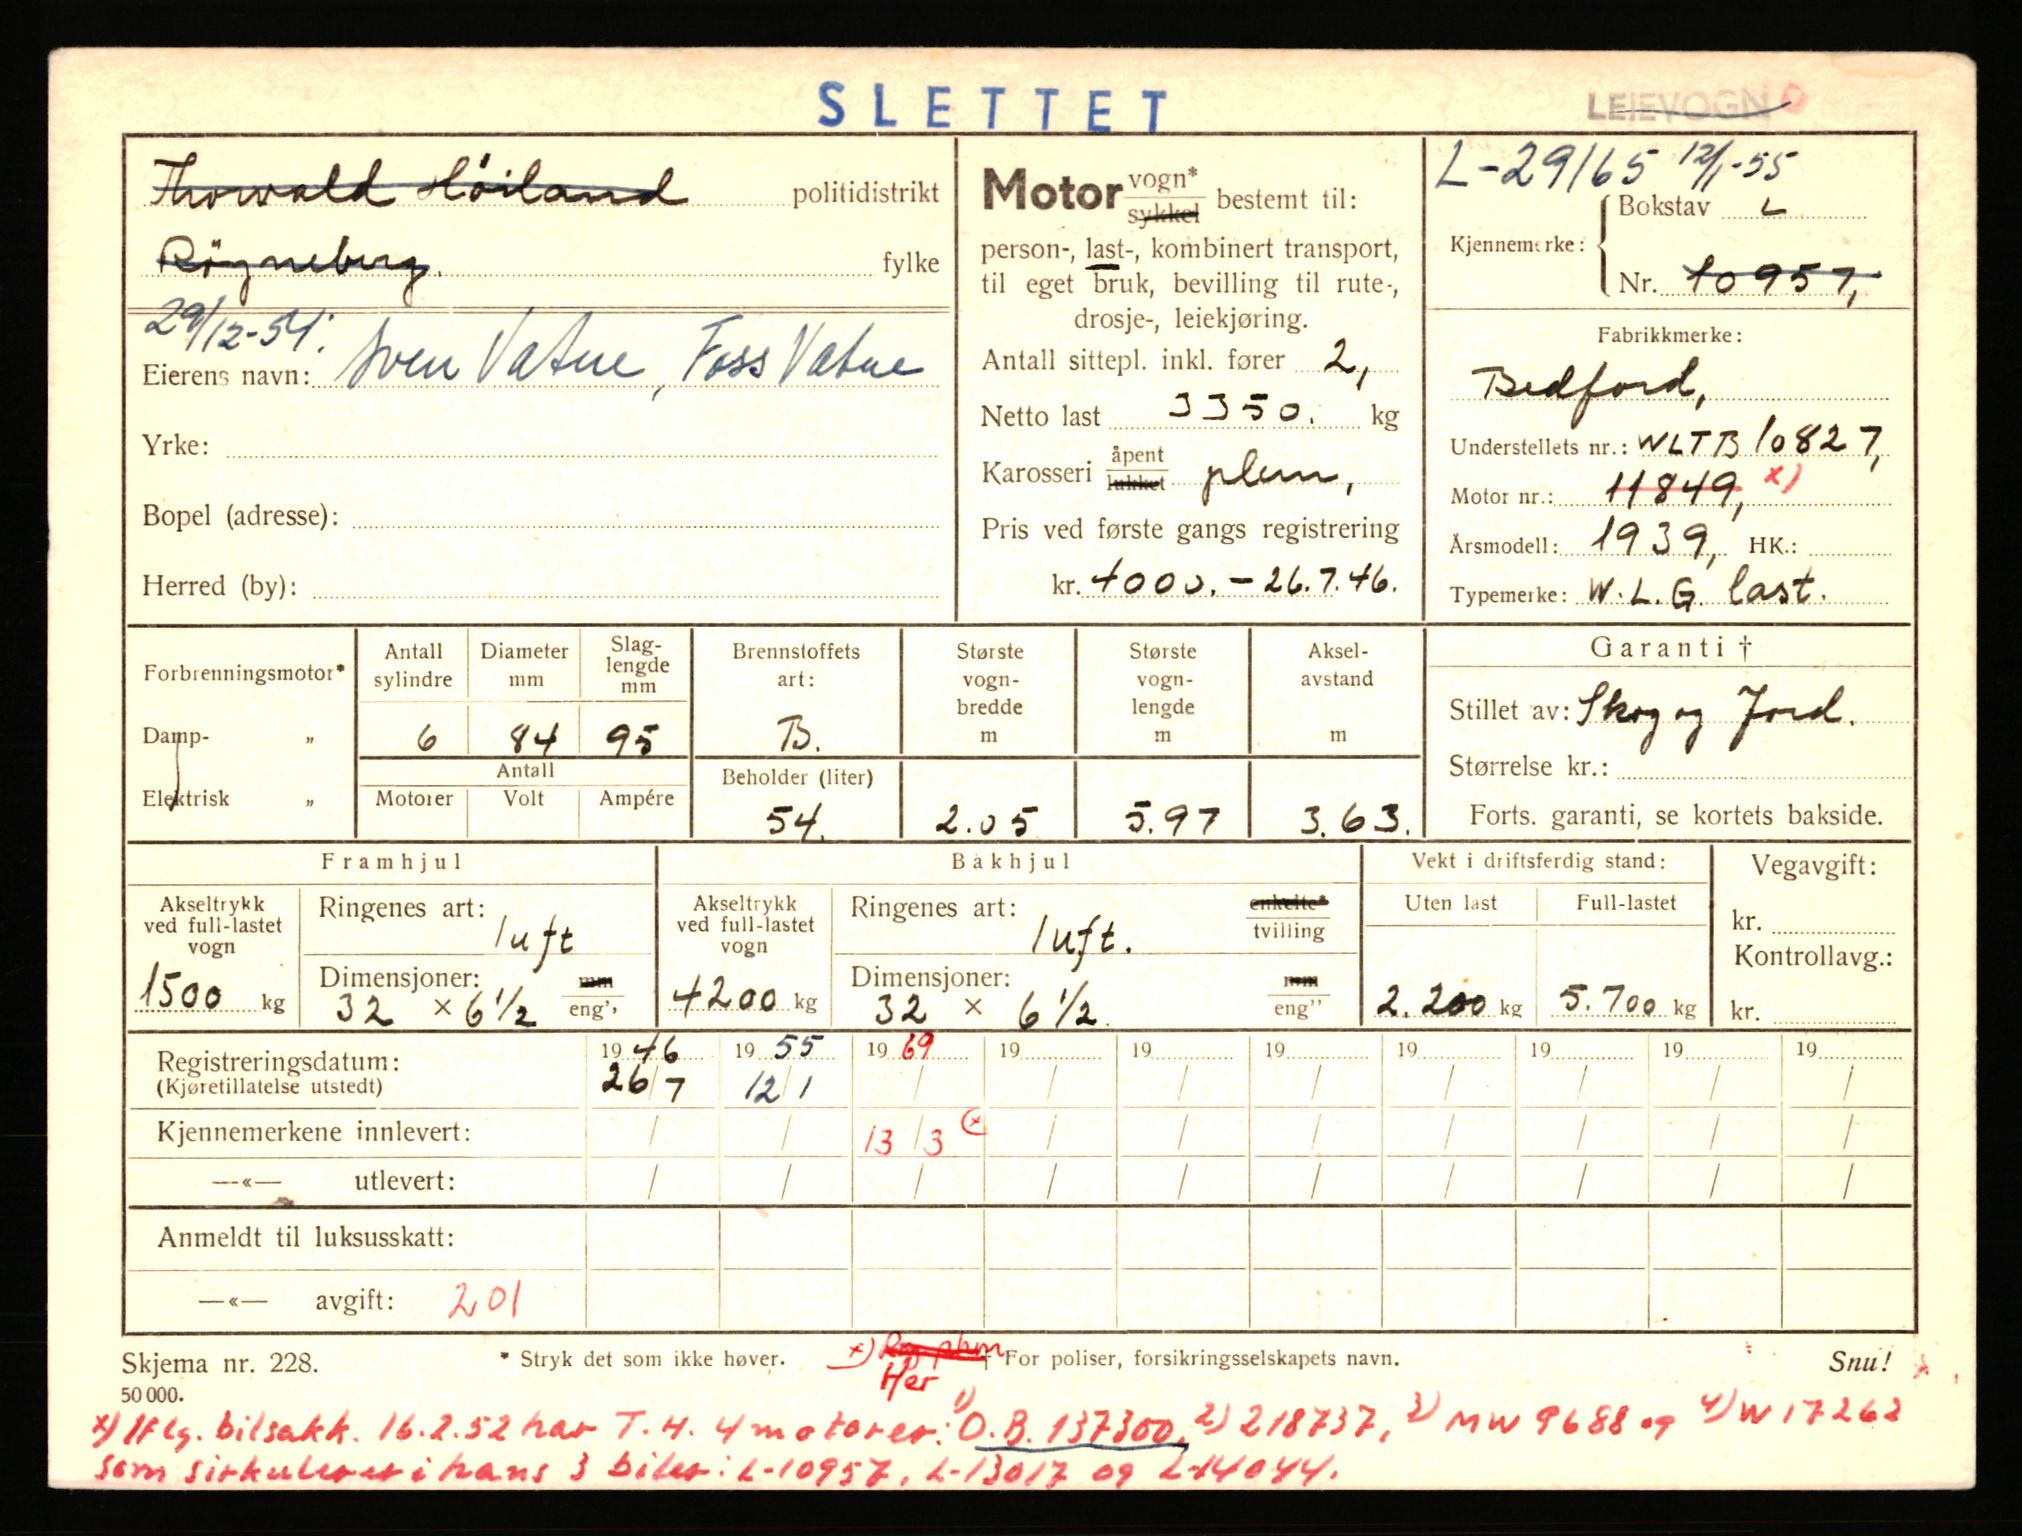 SLETTET
LEIEVOGN
Thorvald Höiland politidistrikt
Rögneberg. fylke
29/12-54:
Eierens navn: Sven Vatne, Foss Vatne
Yrke:
Bopel (adresse):
Herred (by):
Motor vogn* sykkel bestemt til:
person-, last-, kombinert transport,
til eget bruk, bevilling til rute-,
drosje-, leiekjøring.
Antall sittepl. inkl. fører 2,
Netto last 3350. kg
Karosseri åpent lukket plan,
Pris ved første gangs registrering
kr. 4000.- 26.7.46.
L-29165 12/1-55
Kjennemerke: Bokstav L
Nr. 10957,
Fabrikkmerke:
Bedford,
Understellets nr.: WLTB 10827,
Motor nr.: 11849, x)
Årsmodell: 1939, HK.:
Typemerke: W.L.G. last.
Forbrenningsmotor*
Damp- „
Elektrisk „
Antall sylindre Diameter mm Slag-lengde mm
6 84 95
Antall
Motorer Volt Ampére
Brennstoffets art:
B.
Beholder (liter)
54.
Største vogn-bredde m
2.05
Største vogn-lengde m
5.97
Aksel-avstand m
3.63.
Garanti †
Stillet av: Skog og Jord.
Størrelse kr.:
Forts. garanti, se kortets bakside.
Framhjul
Akseltrykk ved full-lastet vogn
1500 kg
Ringenes art: luft
Dimensjoner: mm
32 × 6 1/2 eng''
Bakhjul
Akseltrykk ved full-lastet vogn
4200 kg
Ringenes art: luft. enkelte* tvilling
Dimensjoner: mm
32 × 6 1/2 eng''
Vekt i driftsferdig stand:
Uten last Full-lastet
2.200 kg 5.700 kg
Vegavgift:
kr.
Kontrollavg.:
kr.
Registreringsdatum: 1946 1955 1969 19 19 19 19 19 19 19
(Kjøretillatelse utstedt) 26/7 12/1 / / / / / / / /
Kjennemerkene innlevert: / / 13/3 x / / / / / / /
—«— utlevert: / / / / / / / / / /
Anmeldt til luksusskatt:
—«— avgift: 201
Skjema nr. 228. * Stryk det som ikke høver. x) † For poliser, forsikringsselskapets navn. Snu!
Her
50 000.
x) Iflg. bilsakk. 16.2.52 har T.H. 4 motorer: 1) O.B. 137300, 2) 218737, 3) MW 9688 og 4) W 17263
som sirkulerer i hans 3 biler: L-10957, L-13017 og L-14044.